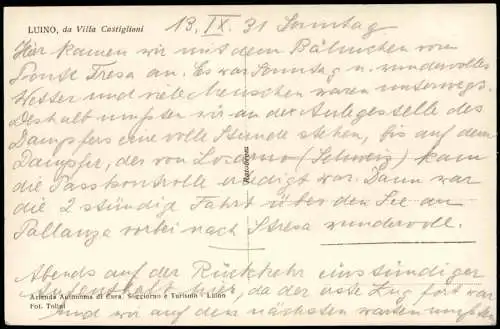 LUINO, da Villa Castiglioni
13. IX. 31 Sonntag
Hier kamen wir mit dem Bähnchen von
Ponte Tresa an. Es war Sonntag u. wundervolles
Wetter und viele Menschen waren unterwegs.
Deshalb mußten wir an der Anlegestelle des
Dampfers eine volle Stunde stehen, bis auf dem
Dampfer, der von Locarno (Schweiz) kam
die Passkontrolle erledigt war. Dann war
die 2 stündig Fahrt über den See an
Pallanza vorbei nach Stresa wundervoll.
Abends auf der Rückkehr einstündiger
Aufenthalt hier, da der erste Zug fort war
und wir auf den nächsten warten mußten
Azienda Autonoma di Cura, Soggiorno e Turismo - Luino
Fot. Tollini